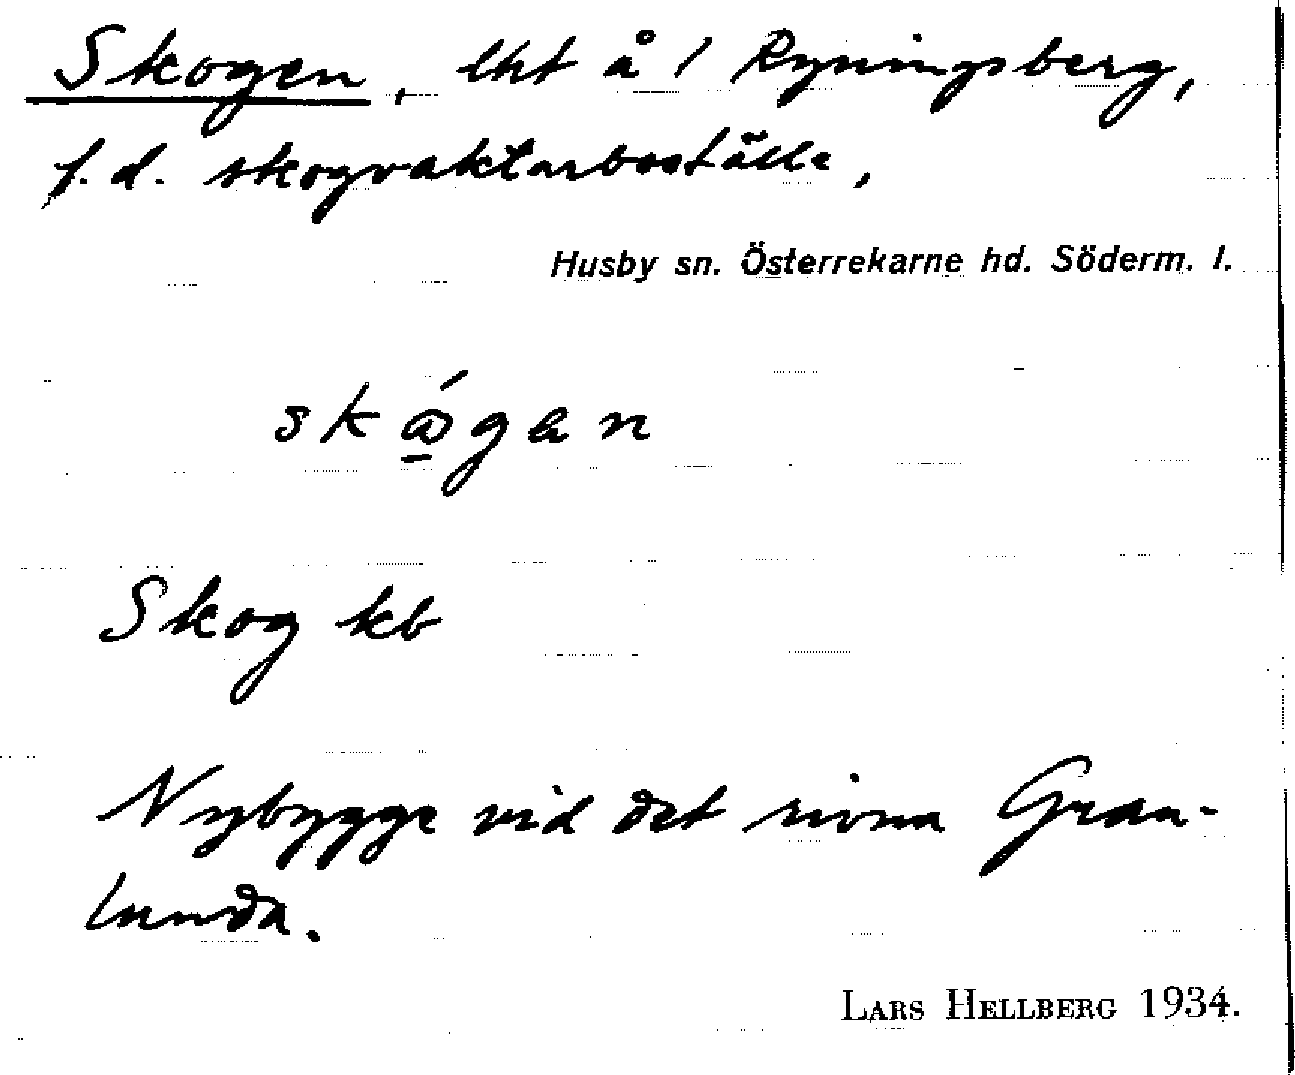 Skogen, lht å 1 Ryningsberg,
f.d. skogvaktarboställe,
Husby sn. Österrekarne hd. Söderm. l.
Skog kb
Nybygge vid det rivna Gran-
lunda.
LARS HELLBERG 1934.